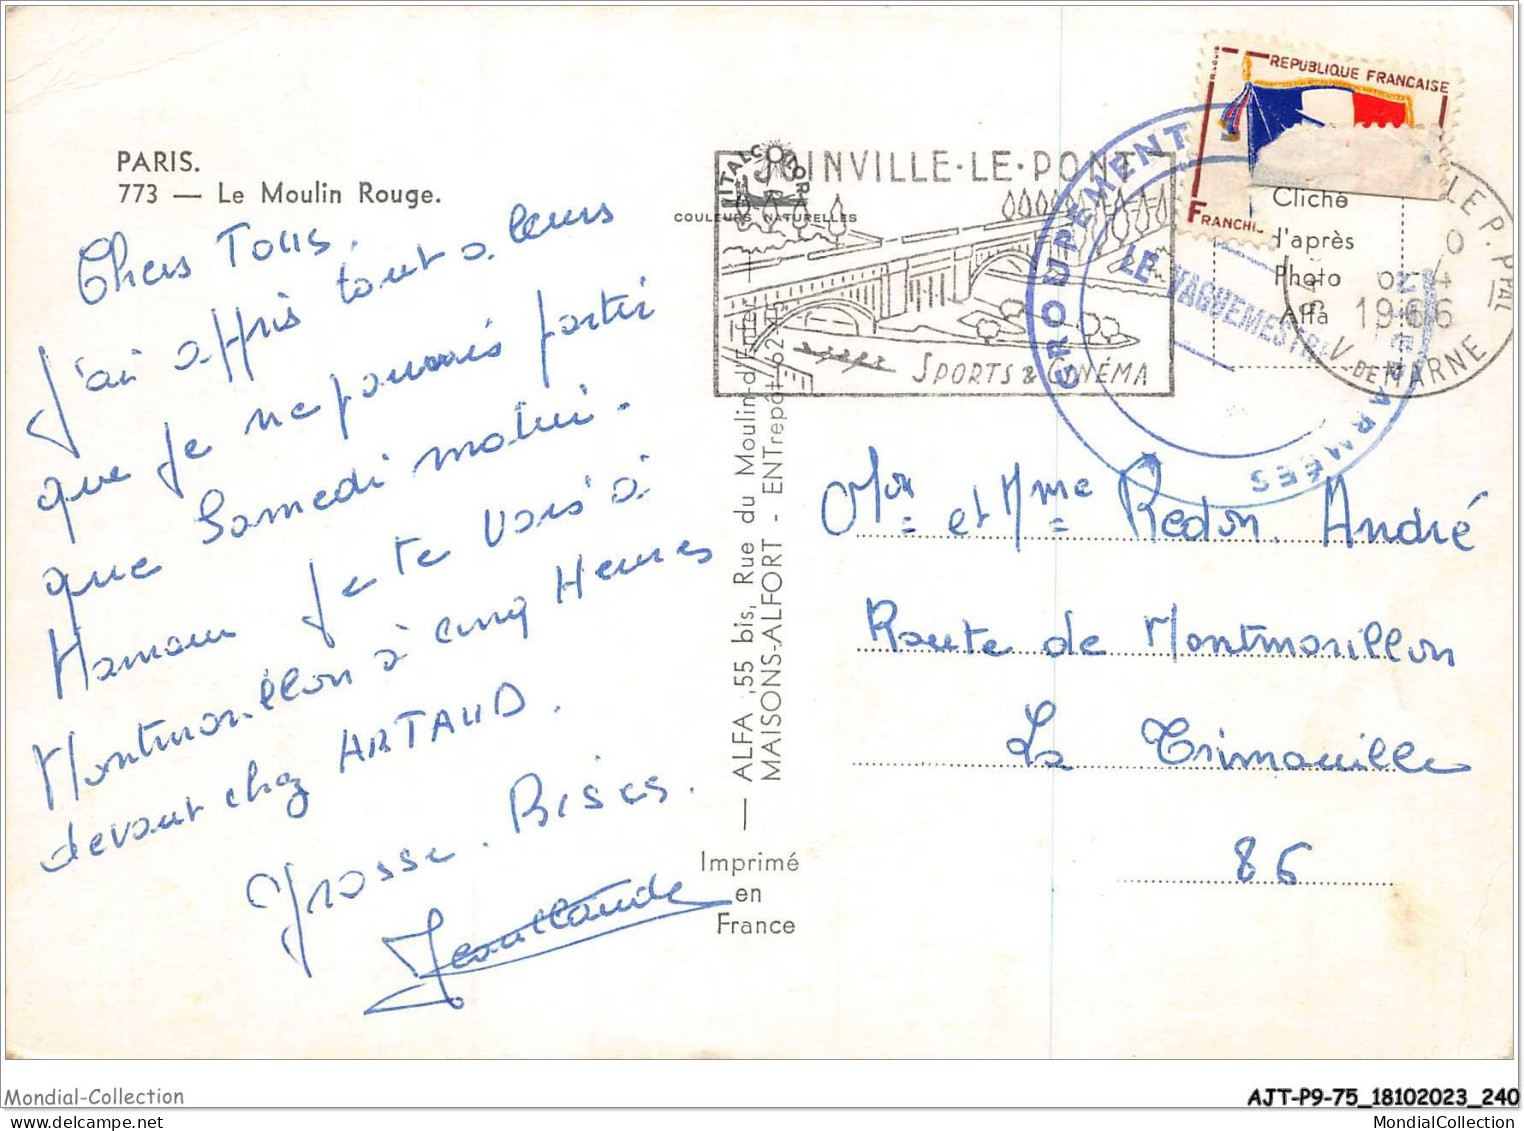 PARIS.
773 — Le Moulin Rouge.
Chers Tous.
J'ai appris tout a leurs
que je ne pouvais partir
que Samedi matin.
Maman je te vais à
Montmorillon à cinq Heures
devant chez ARTAUD.
Grosse. Bises.
Jean Claude
ITALCOLOR
COULEURS NATURELLES
— ALFA ,55 bis, Rue du Moulin-d'Enfer —
MAISONS-ALFORT - ENTrepôt 62-
Imprimé
en
France
JOINVILLE-LE-PONT
SPORTS & CINÉMA
GROUPEMENT
ARMÉES
LE VAGUEMESTRE
REPUBLIQUE FRANCAISE
FRANCHI
Cliché
d'après
Photo
Alfa
LE P. PPAL
1966
V. DE MARNE
Mr et Mme Redon André
Route de Montmorillon
La Trimouille
86
Mondial-Collection
AJT-P9-75_18102023_240
MondialCollection